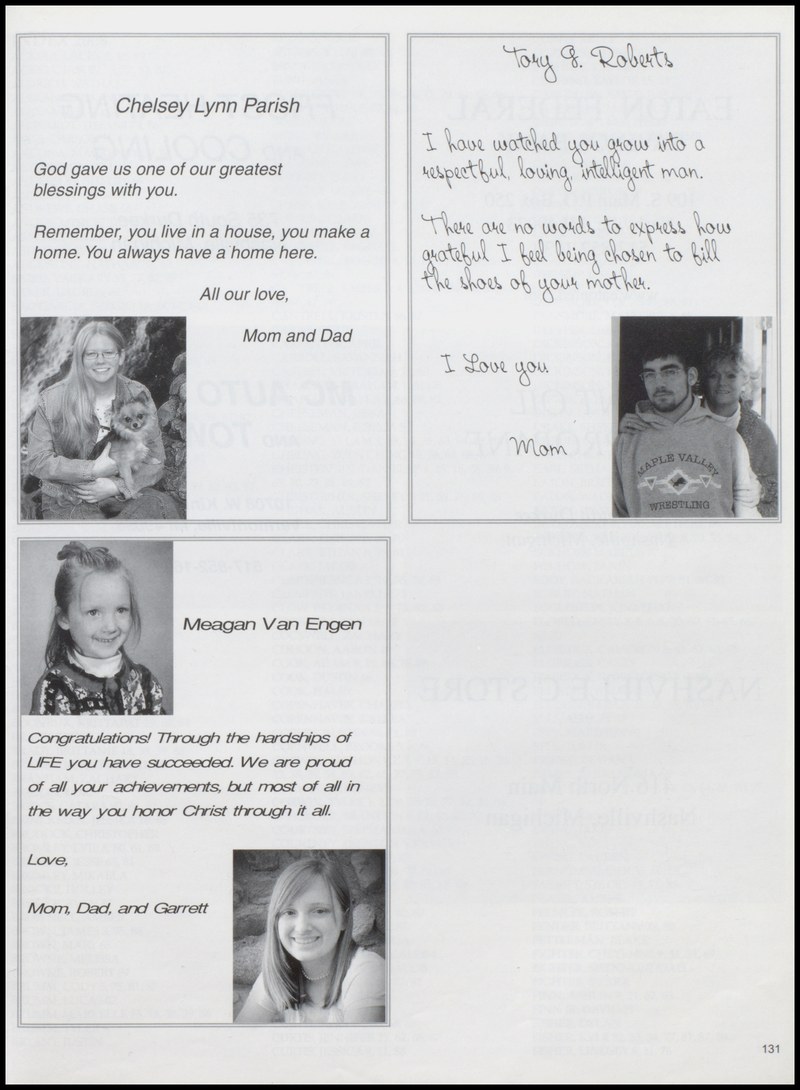 Chelsey Lynn Parish
God gave us one of our greatest
blessings with you.
Remember, you live in a house, you make a
home. You always have a home here.
All our love,
Mom and Dad
Tory G. Roberts
I have watched you grow into a
respectful, loving, intelligent man.
There are no words to express how
grateful I feel being chosen to fill
the shoes of your mother.
I Love you
Mom
MAPLE VALLEY
WRESTLING
Meagan Van Engen
Congratulations! Through the hardships of
LIFE you have succeeded. We are proud
of all your achievements, but most of all in
the way you honor Christ through it all.
Love,
Mom, Dad, and Garrett
131